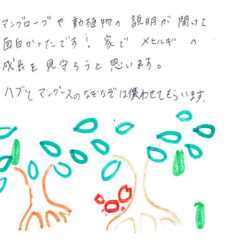 マングローブや動植物の説明が聞けて
面白かったです！家でメヒルギの
成長を見守ろうと思います。
ハブとマングースのなぞなぞは使わせてもらいます